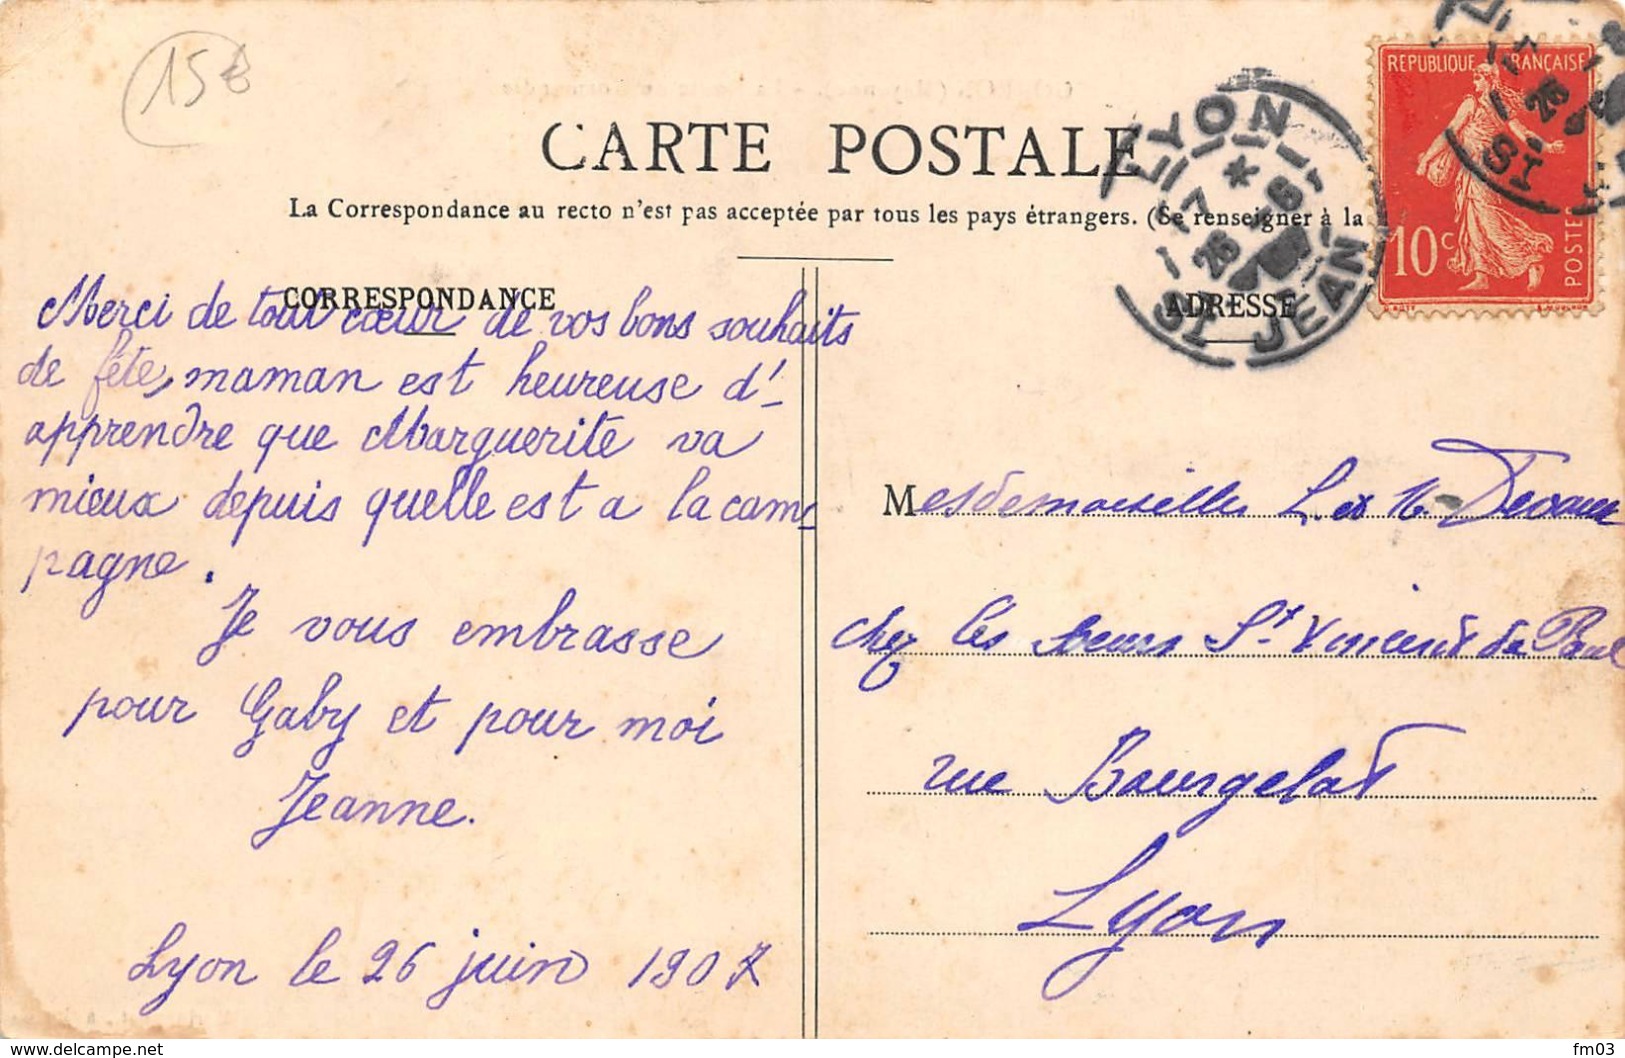 15€
CARTE POSTALE
La Correspondance au recto n'est pas acceptée par tous les pays étrangers. (Se renseigner à la
REPUBLIQUE FRANÇAISE
10c
POSTES
LYON
17 * 26 -6
ST JEAN
26
ST
CORRESPONDANCE
ADRESSE
Merci de tout cœur de vos bons souhaits
de fête, maman est heureuse d'-
apprendre que Marguerite va
mieux depuis quelle est a la cam-
pagne.
Je vous embrasse
pour Gaby et pour moi
Jeanne.
Lyon le 26 juin 1907
Mesdemoiselles L. et M.
chez les sœurs St Vincent de Paul
rue Bourgelat
Lyon
www.delcampe.net
fm03